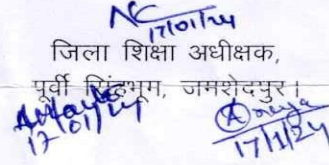 NC
17/01/24
जिला शिक्षा अधीक्षक,
पूर्वी सिंहभूम, जमशेदपुर।
17/01/24
17/1/24